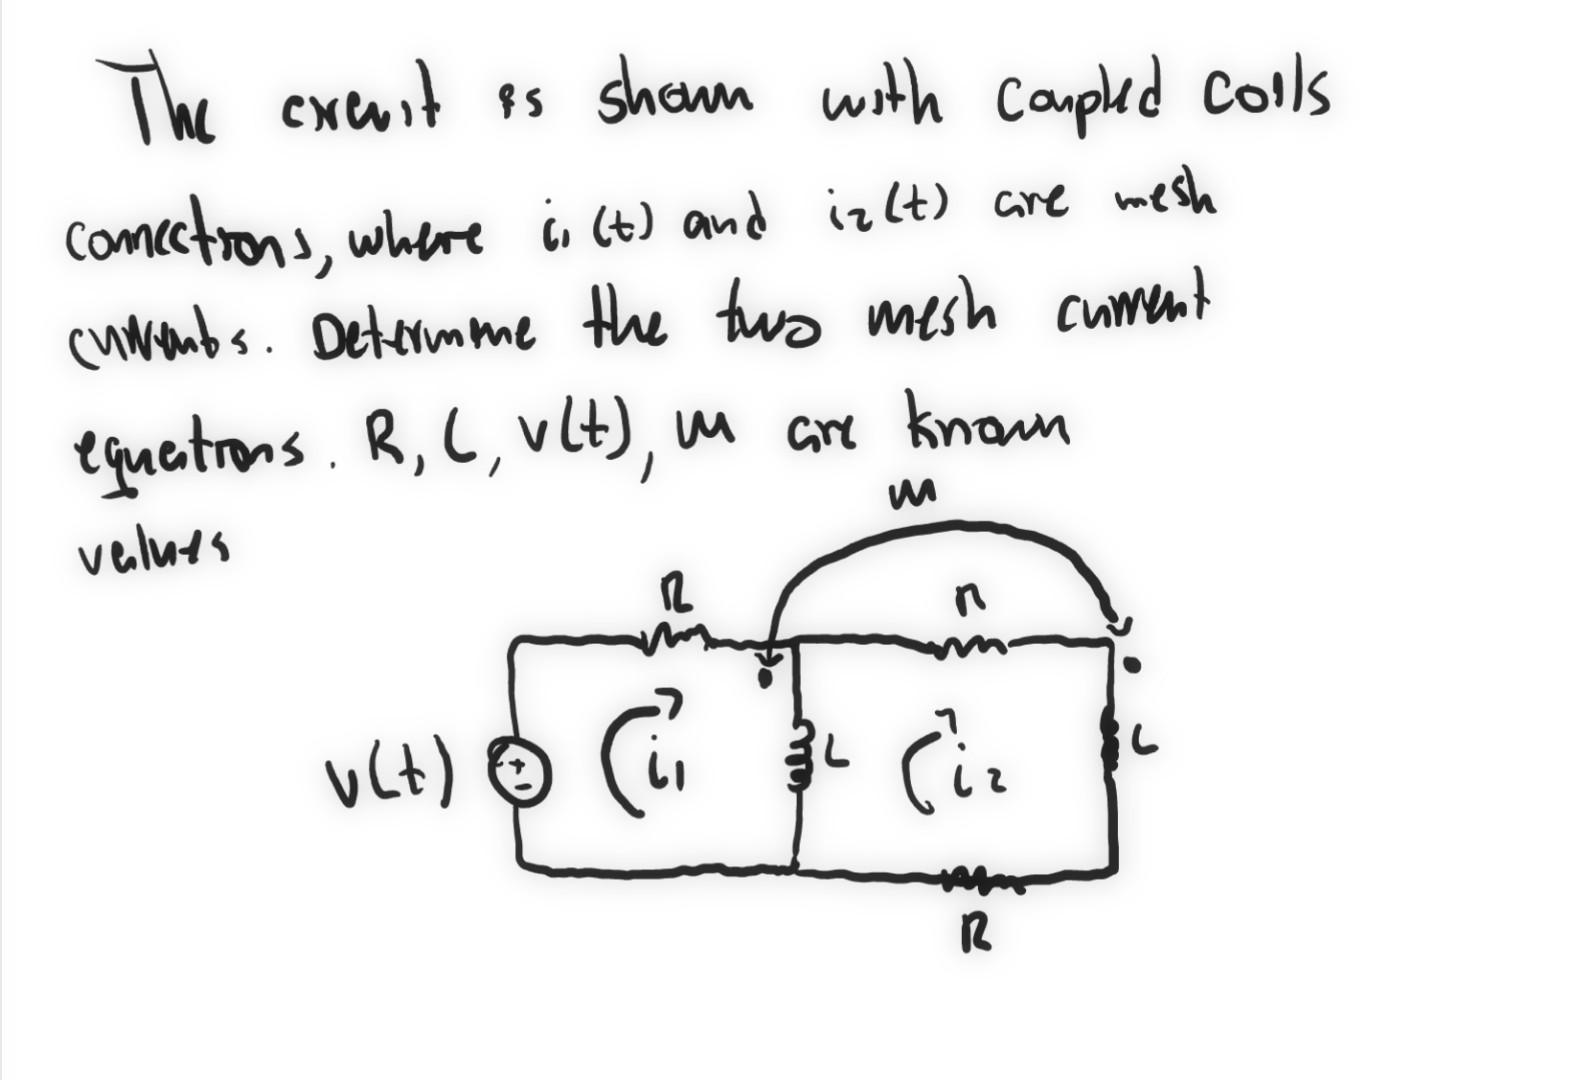 The circuit is shown with coupled coils
connections, where i₁(t) and i₂(t) are mesh
currents. Determine the two mesh current
equations. R, L, v(t), M are known
values
M
R
R
v(t)
+
-
i₁
L
i₂
L
R